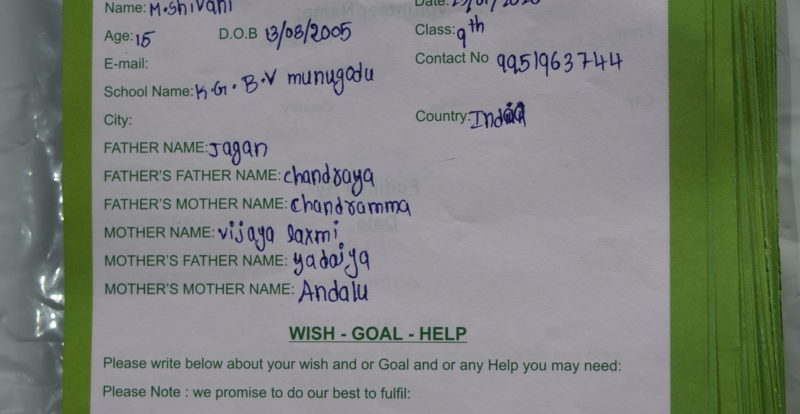 Name: M.Shivani
Age: 15 D.O.B 13/08/2005 Class: 9th
E-mail: Contact No 9951963744
School Name: K.G.B.V munugodu
City: Country: India
FATHER NAME: Jagan
FATHER'S FATHER NAME: chandraya
FATHER'S MOTHER NAME: chandramma
MOTHER NAME: vijaya laxmi
MOTHER'S FATHER NAME: yadaiya
MOTHER'S MOTHER NAME: Andalu
WISH - GOAL - HELP
Please write below about your wish and or Goal and or any Help you may need:
Please Note : we promise to do our best to fulfil: